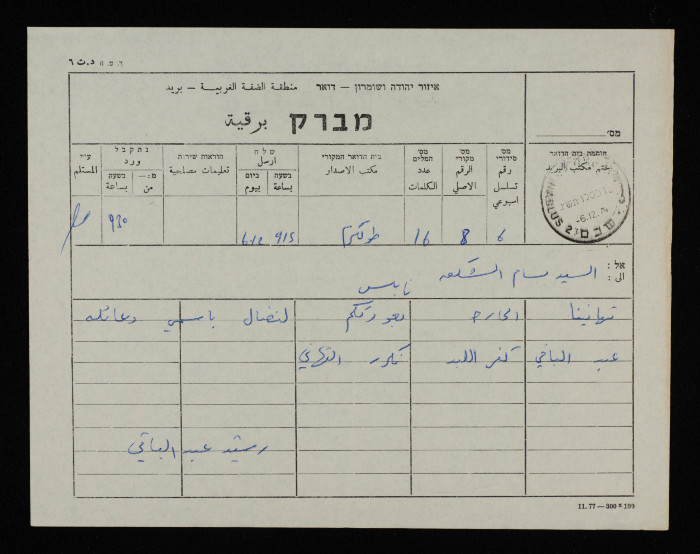 ד. מ. ח د.ت ٦
איזור יהודה ושומרון — דואר منطقة الضفة الغربية — بريد
מברק برقية
מס׳
חותמת-בית הדואר
ختم مكتب البريد
מס׳ סידורי رقم تسلسل اسبوعي
מס׳ מקורי الرقم الاصلي
מס׳ המלים عدد الكلمات
בית הדואר המקורי مكتب الاصدار
שלח ارسل
בשעה بساعة
ביום بيوم
הוראות שירות تعليمات مصلحية
נתקבל ورد
מ:— من
בשעה بساعة
ע״י المستلم
6 8 16 طولكرم 915 6/12 930
NABLUS 2 שכם
-6.12.79
אל :
الى : السيد بسام الشكعه نابلس
تهانينا الحارة بعودتكم لنضال باسمي وعائلة
عبد الباقي كفر اللبد نكرر التهاني
رشيد عبد الباقي
11. 77 — 300 × 199